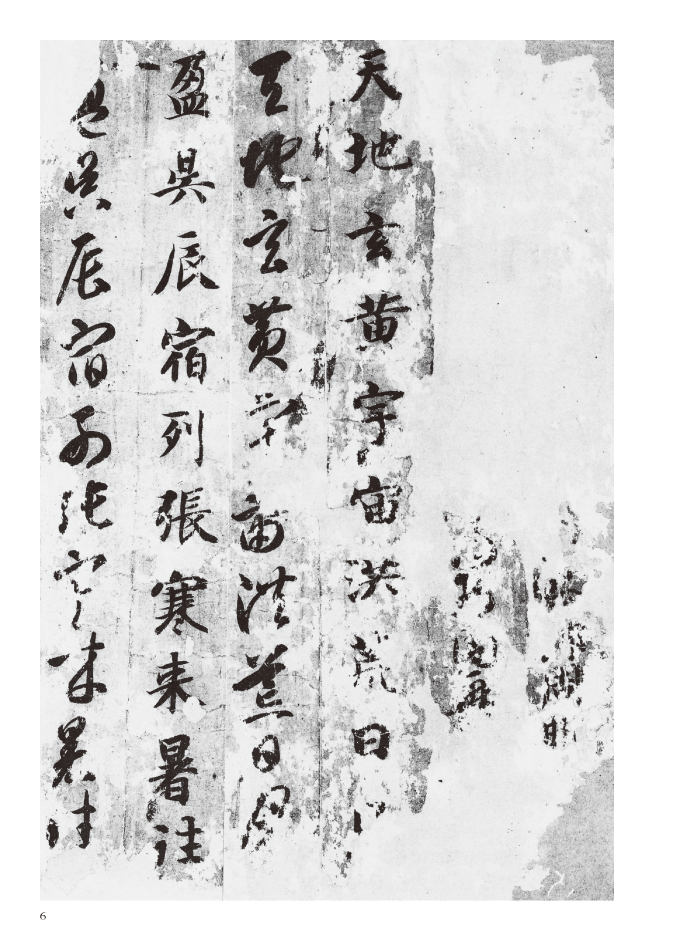 天地玄黄宇宙洪荒日
天地玄黄宇宙洪荒日月
盈昃辰宿列張寒来暑往
盈昃辰宿列張寒来暑往
6